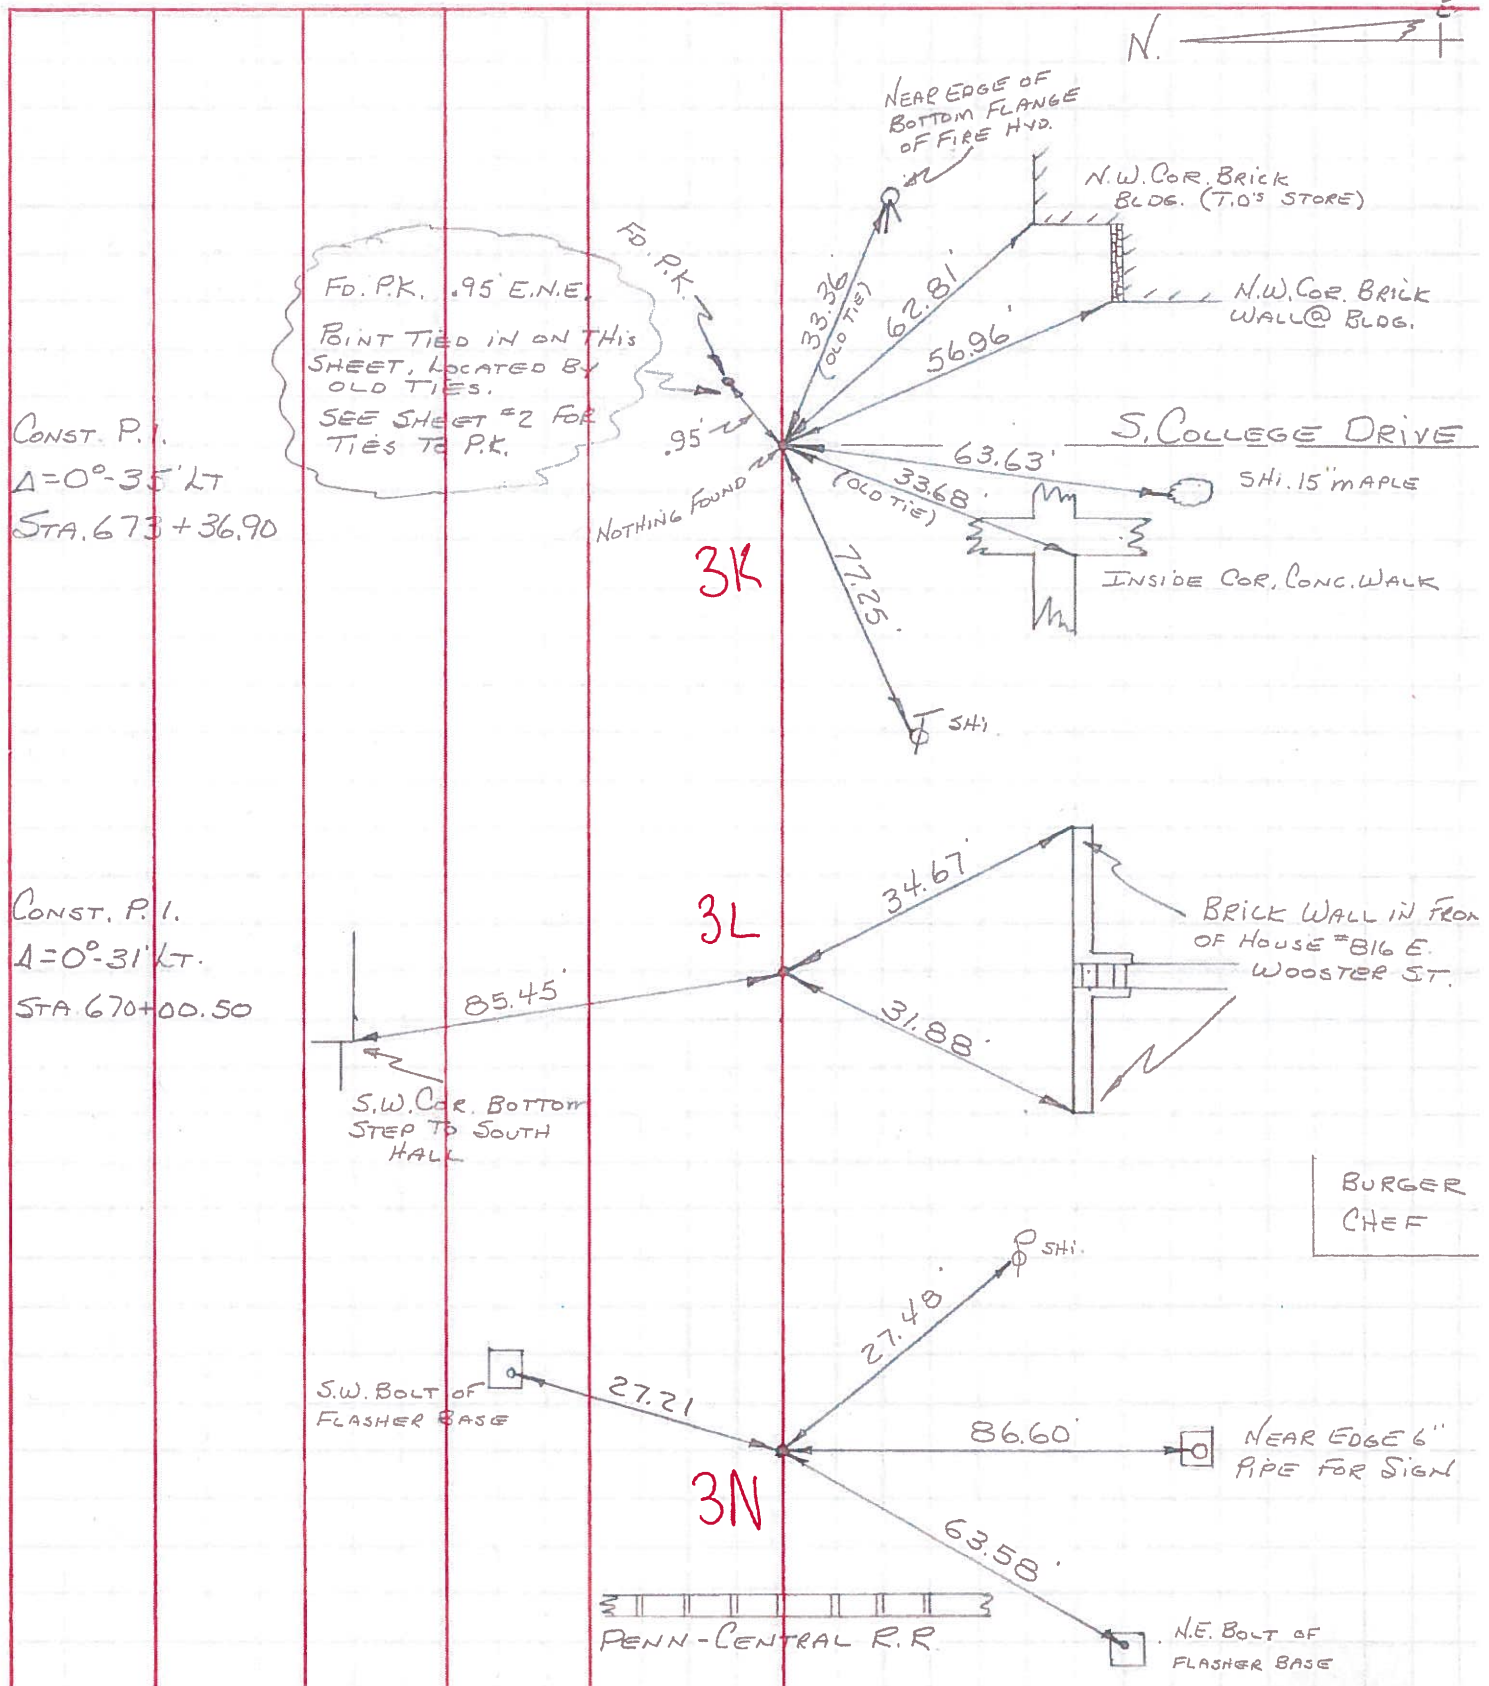 N.
NEAR EDGE OF
BOTTOM FLANGE
OF FIRE HYD.
N.W. COR. BRICK
BLDG. (T.O'S STORE)
FD. P.K.
FD. P.K. .95' E.N.E.
POINT TIED IN ON THIS
SHEET, LOCATED BY
OLD TIES.
SEE SHEET #2 FOR
TIES TO P.K.
33.36'
(OLD TIE)
62.81'
56.96'
N.W. COR. BRICK
WALL @ BLDG.
CONST. P.I.
Δ=0°-35' LT
STA. 673+36.90
.95'
NOTHING FOUND
S. COLLEGE DRIVE
63.63'
SHI. 15" MAPLE
33.68'
(OLD TIE)
INSIDE COR. CONC. WALK
3K
77.25'
SHI.
CONST. P.I.
Δ=0°-31' LT.
STA. 670+00.50
3L
34.67'
85.45'
31.88'
BRICK WALL IN FRON
OF HOUSE #816 E.
WOOSTER ST.
S.W. COR. BOTTOM
STEP TO SOUTH
HALL
BURGER
CHEF
SHI.
27.48'
S.W. BOLT OF
FLASHER BASE
27.21
86.60'
NEAR EDGE 6"
PIPE FOR SIGN
3N
63.58'
PENN-CENTRAL R.R.
N.E. BOLT OF
FLASHER BASE